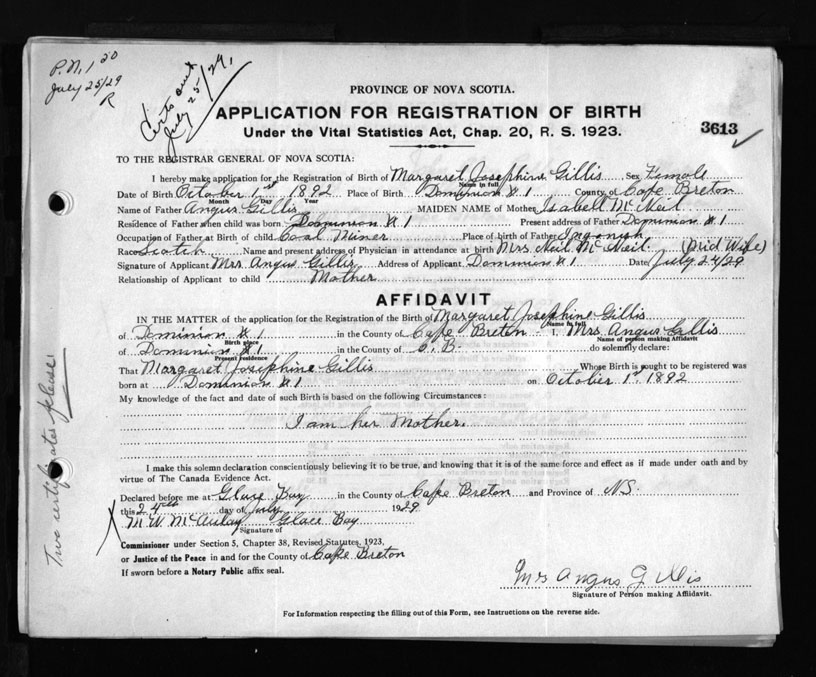 P.N. 1 20
July 25/29
R
Certs out
July 25/29,
PROVINCE OF NOVA SCOTIA.
APPLICATION FOR REGISTRATION OF BIRTH
Under the Vital Statistics Act, Chap. 20, R. S. 1923.
3613
TO THE REGISTRAR GENERAL OF NOVA SCOTIA:
I hereby make application for the Registration of Birth of Margaret Josephine Gillis Sex Female
Name in full
Date of Birth October 1st 1892 Place of Birth Dominion # 1 County of Cape Breton
Month Day Year
Name of Father Angus Gillis MAIDEN NAME of Mother Isabell McNeil
Residence of Father when child was born Dominion # 1 Present address of Father Dominion # 1
Occupation of Father at Birth of child Coal Miner Place of birth of Father Ingonish
Race Scotch Name and present address of Physician in attendance at birth Mrs Neil McNeil (Mid Wife)
Signature of Applicant Mrs Angus Gillis Address of Applicant Dominion # 1 Date July 24/29
Relationship of Applicant to child Mother
AFFIDAVIT
IN THE MATTER of the application for the Registration of the Birth of Margaret Josephine Gillis
Name in full
of Dominion # 1 in the County of Cape Breton I, Mrs Angus Gillis
Birth place Name of person making Affidavit
of Dominion # 1 in the County of C.B. do solemnly declare:
Present residence
That Margaret Josephine Gillis Whose Birth is sought to be registered was
born at Dominion # 1 on October 1st 1892
My knowledge of the fact and date of such Birth is based on the following Circumstances:
I am her Mother.
I make this solemn declaration conscientiously believing it to be true, and knowing that it is of the same force and effect as if made under oath and by
virtue of The Canada Evidence Act.
Declared before me at Glace Bay in the County of Cape Breton and Province of N.S.
this 24th day of July 1929
M. W. McAulay Glace Bay
Signature of
Commissioner under Section 5, Chapter 38, Revised Statutes, 1923,
or Justice of the Peace in and for the County of Cape Breton
If sworn before a Notary Public affix seal.
Mrs Angus Gillis
Signature of Person making Affidavit.
For Information respecting the filling out of this Form, see Instructions on the reverse side.
Two certificates please